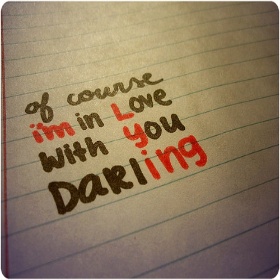 of course
i'm in Love
with you
DarLing